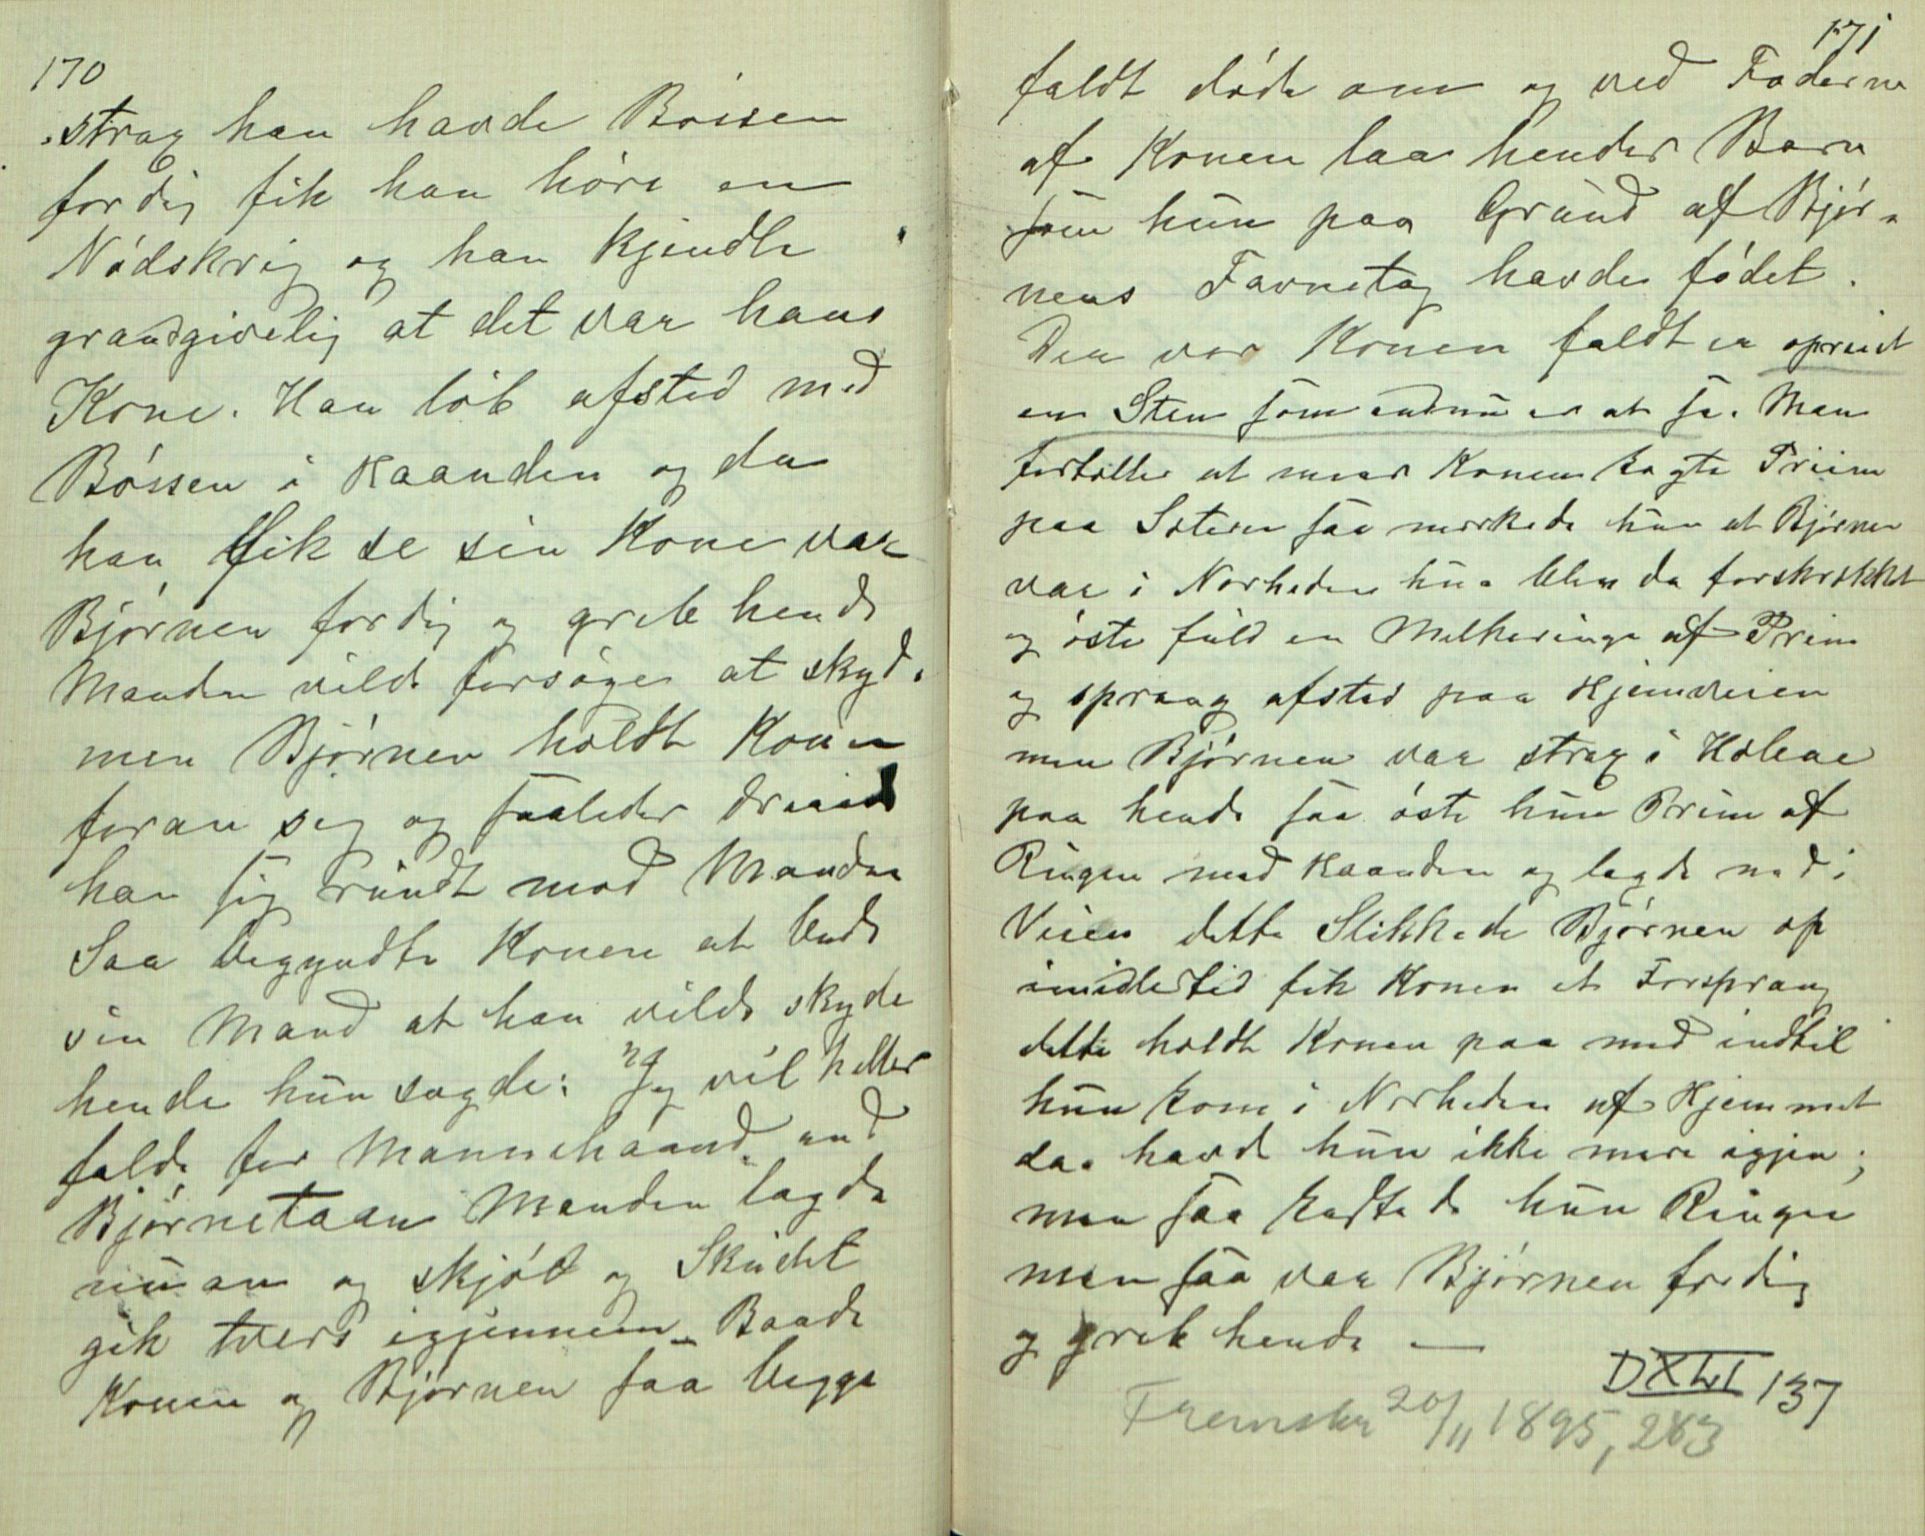 170
strax han havde Bössen
fordig fik han höre en
Nödskrig og han kjendte
grandgivelig at det var hans
Kone. Han löb afsted med
Bössen i Haanden og da
han fik se sin Kone var
Björnen fordig og greb hende
Manden vilde forsöge at skyde
men Björnen holdt Konen
foran sig og saaledes
han sig rundt mod Manden
Saa begyndte Konen at bede
sin Mand at han vilde skyde
hende hun sagde: "Jeg vil heller
falde for Mannehaand end
Björnetaan Manden lagde
nu an og skjöd og Skudet
gik tvers igjennem Baade
Konen og Björnen saa begge
171
faldt döde om og ved Föderne
af Konen laa hendes Barn
som hun paa Grund af Björ-
nens Favnetag havde födet.
Der vor Konen faldt er opreist
en Sten som endnu er at se. Man
fortæller at naar Konen kogte Priim
paa Sæteren saa merkede hun at Björnen
var i Nærheden hun blev da forskrækket
og öste fuld en Melkeringe af Prim
og sprang afsted paa Hjemveien
men Björnen var strax i Hælene
paa hende saa öste hun Prim af
Ringen med Haanden og lagde ned i
Veien dette Slikkede Björnen op
imidlertid fik Konen et Forsprang
dette holdt Konen paa med indtil
hun kom i Nærheden af Hjemmet
da havde hun ikke mere igjen;
men saa kastede hun Ringen
men saa var Björnen fordig
og greb hende —
137
Fremskr 20/11 1895, 283